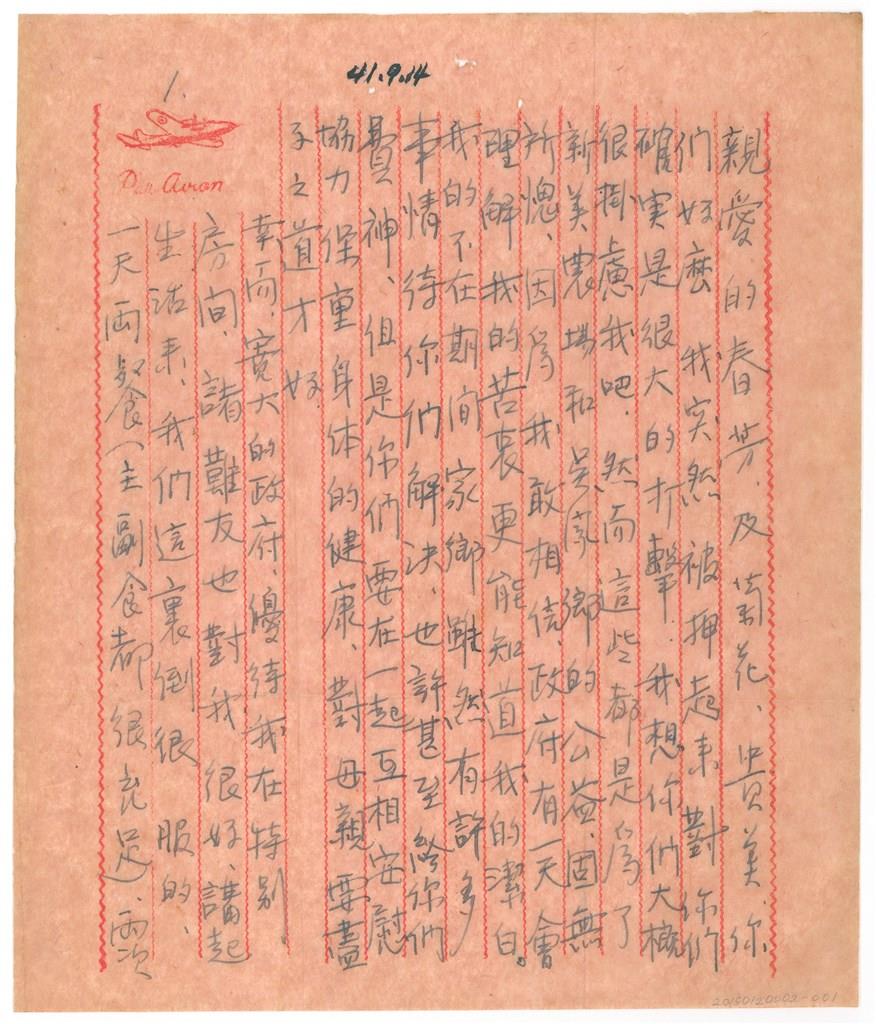 41.9.14
1.
Par Avion
親愛的春芳、及菊花、貴美、你
們好麼 我突然被押起来對你們
確実是很大的打擊. 我想你們大概
很掛慮我吧. 然而這些都是為了
新美農場和吳鳳鄉的公益、固無
所愧、因為我敢相信、政府有一天會
理解我的苦衷更能知道我的潔白。
我的不在期間家鄉雖然有許多
事情待你們解決、也許甚至終你們
費神、但是你們要在一起互相安慰
協力保重身体的健康、對母親要盡
子之道才好.
幸而、寬大的政府、優待我在特別
房间、諸難友也對我很好、講起
生活来、我們這裏倒很 服的、
一天両餐(主副食都很充足、両次
20150120002-001